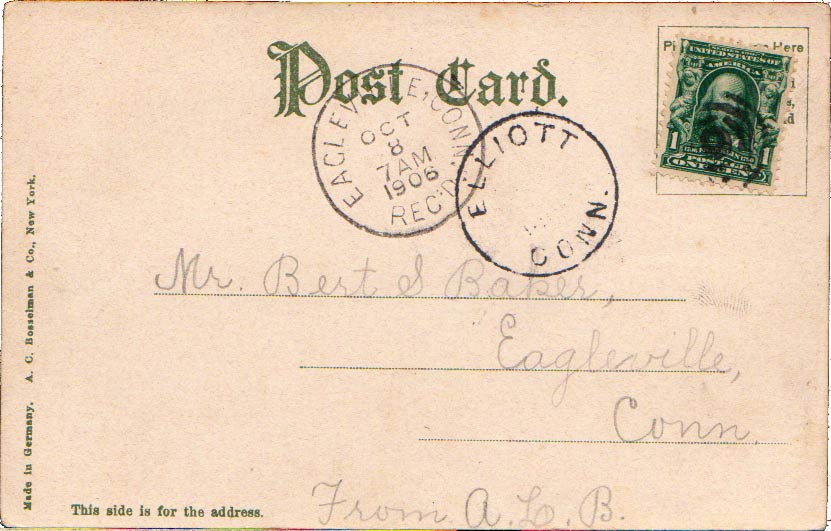 Post Card.
Here
SERIES 1902
UNITED STATES OF
AMERICA
1 1
POSTAGE
ONE CENT
EAGLEVILLE, CONN.
OCT
8
7 AM
1906
REC'D.
ELLIOTT
CONN.
Mr. Bert S Baker,
Eagleville,
Conn.
From A. L. B.
This side is for the address.
Made in Germany. A. C. Bosselman & Co., New York.